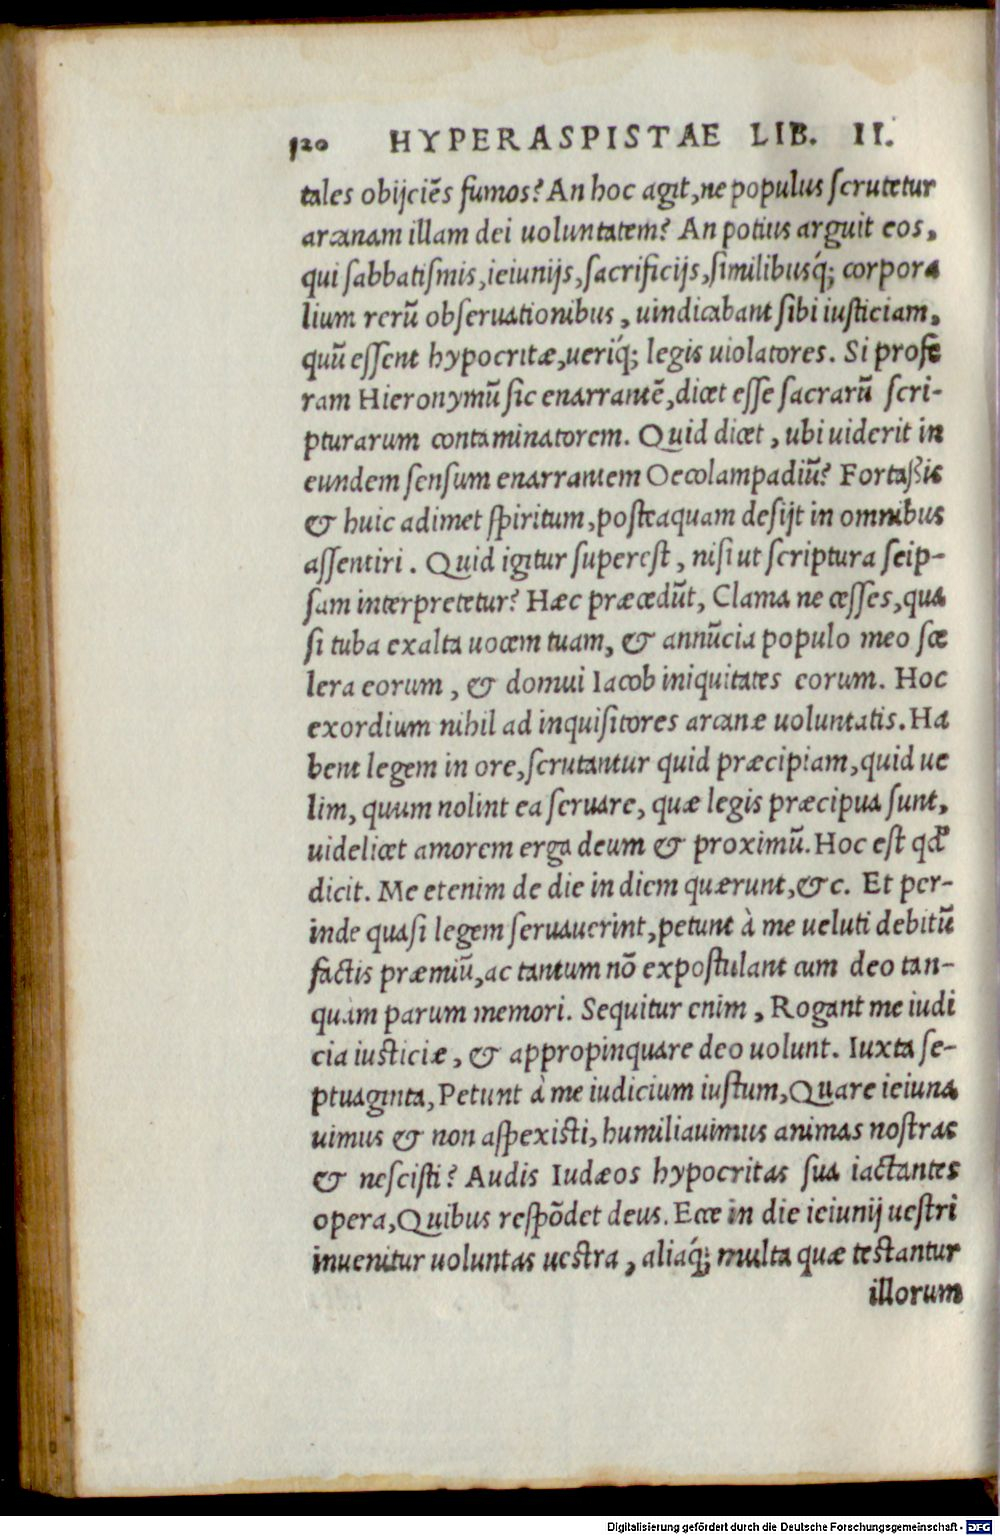 120 HYPERASPISTAE LIB. II.
tales obijciẽs fumos? An hoc agit, ne populus scrutetur
arcanam illam dei uoluntatem? An potius arguit eos,
qui sabbatismis, ieiunijs, sacrificijs, similibusq́; corpora
lium rerũ obseruationibus, uindicabant sibi iusticiam,
quũ essent hypocritæ, ueriq́; legis uiolatores. Si profe
ram Hieronymũ sic enarrantẽ, dicet esse sacrarũ scri-
pturarum contaminatorem. Quid dicet, ubi uiderit in
eundem sensum enarrantem Oecolampadiũ? Fortaßis
& huic adimet spiritum, posteaquam desijt in omnibus
assentiri. Quid igitur superest, nisi ut scriptura seip-
sam interpretetur? Hæc præcedũt, Clama ne cesses, qua
si tuba exalta uocem tuam, & annũcia populo meo sce
lera eorum, & domui Iacob iniquitates eorum. Hoc
exordium nihil ad inquisitores arcanæ uoluntatis. Ha
bent legem in ore, scrutantur quid præcipiam, quid ue
lim, quum nolint ea seruare, quæ legis præcipua sunt,
uidelicet amorem erga deum & proximũ. Hoc est qđ
dicit. Me etenim de die in diem quærunt, &c. Et per-
inde quasi legem seruauerint, petunt à me ueluti debitũ
factis præmiũ, ac tantum nõ expostulant cum deo tan-
quàm parum memori. Sequitur enim, Rogant me iudi
cia iusticiæ, & appropinquare deo uolunt. Iuxta se-
ptuaginta, Petunt à me iudicium iustum, Quare ieiuna
uimus & non aspexisti, humiliauimus animas nostras
& nescisti? Audis Iudæos hypocritas sua iactantes
opera, Quibus respõdet deus. Ecce in die ieiunij uestri
inuenitur uoluntas uestra, aliaq́; multa quæ testantur
illorum
Digitalisierung gefördert durch die Deutsche Forschungsgemeinschaft - DFG